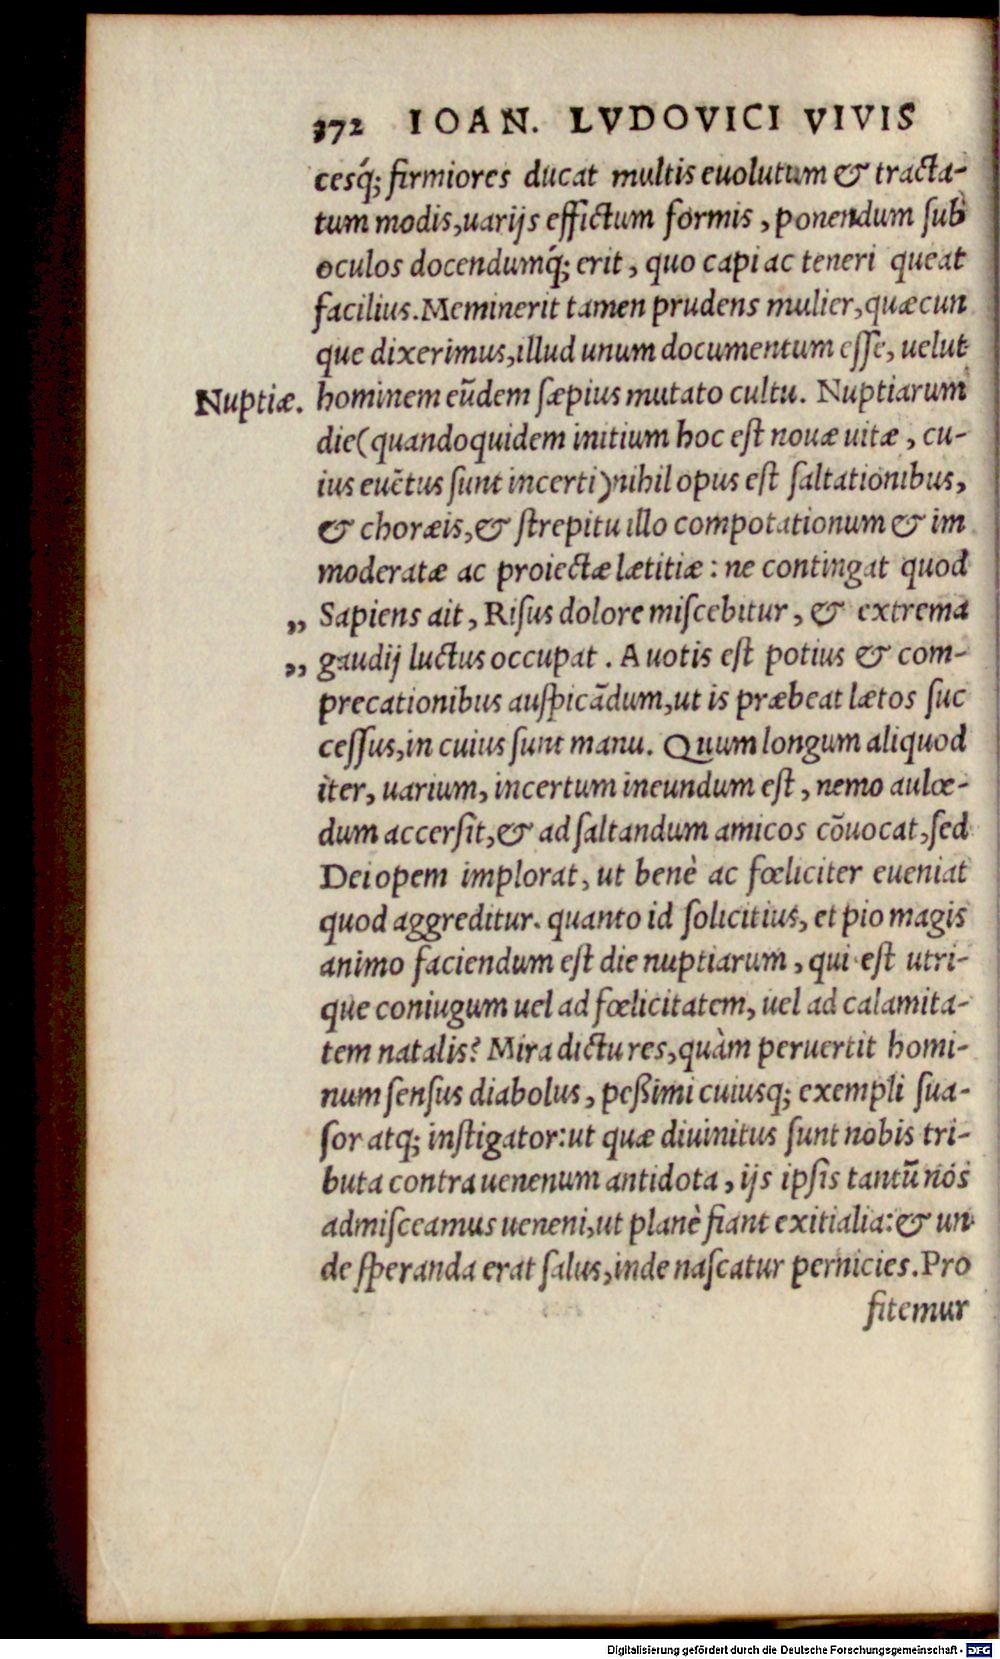 372 IOAN. LVDOVICI VIVIS
cesq́; firmiores ducat multis euolutum & tracta-
tum modis, uarijs effictum formis, ponendum sub
oculos docendumq́; erit, quo capi ac teneri queat
facilius. Meminerit tamen prudens mulier, quæcun
que dixerimus, illud unum documentum esse, uelut
Nuptiæ. hominem eũdem sæpius mutato cultu. Nuptiarum
die (quandoquidem initium hoc est nouæ uitæ, cu-
ius euẽtus sunt incerti) nihil opus est saltationibus,
& choræis, & strepitu illo compotationum & im
moderatæ ac proiectæ lætitiæ: ne contingat quod
„ Sapiens ait, Risus dolore miscebitur, & extrema
„ gaudij luctus occupat. A uotis est potius & com-
precationibus auspicãdum, ut is præbeat lætos suc
cessus, in cuius sunt manu. Quum longum aliquod
iter, uarium, incertum ineundum est, nemo aulœ-
dum accersit, & ad saltandum amicos cõuocat, sed
Dei opem implorat, ut benè ac fœliciter eueniat
quod aggreditur. quanto id solicitius, et pio magis
animo faciendum est die nuptiarum, qui est utri-
que coniugum uel ad fœlicitatem, uel ad calamita-
tem natalis? Mira dictu res, quàm peruertit homi-
num sensus diabolus, peßimi cuiusq; exempli sua-
sor atq; instigator: ut quæ diuinitus sunt nobis tri-
buta contra uenenum antidota, ijs ipsis tantũ nos
admisceamus ueneni, ut planè fiant exitialia: & un
de speranda erat salus, inde nascatur pernicies. Pro
fitemur
Digitalisierung gefördert durch die Deutsche Forschungsgemeinschaft - DFG